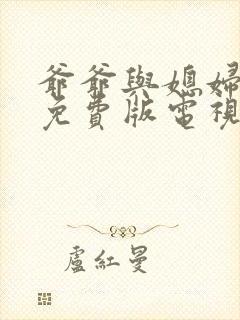 爺爺與媳婦
免費版電視
盧紅曼